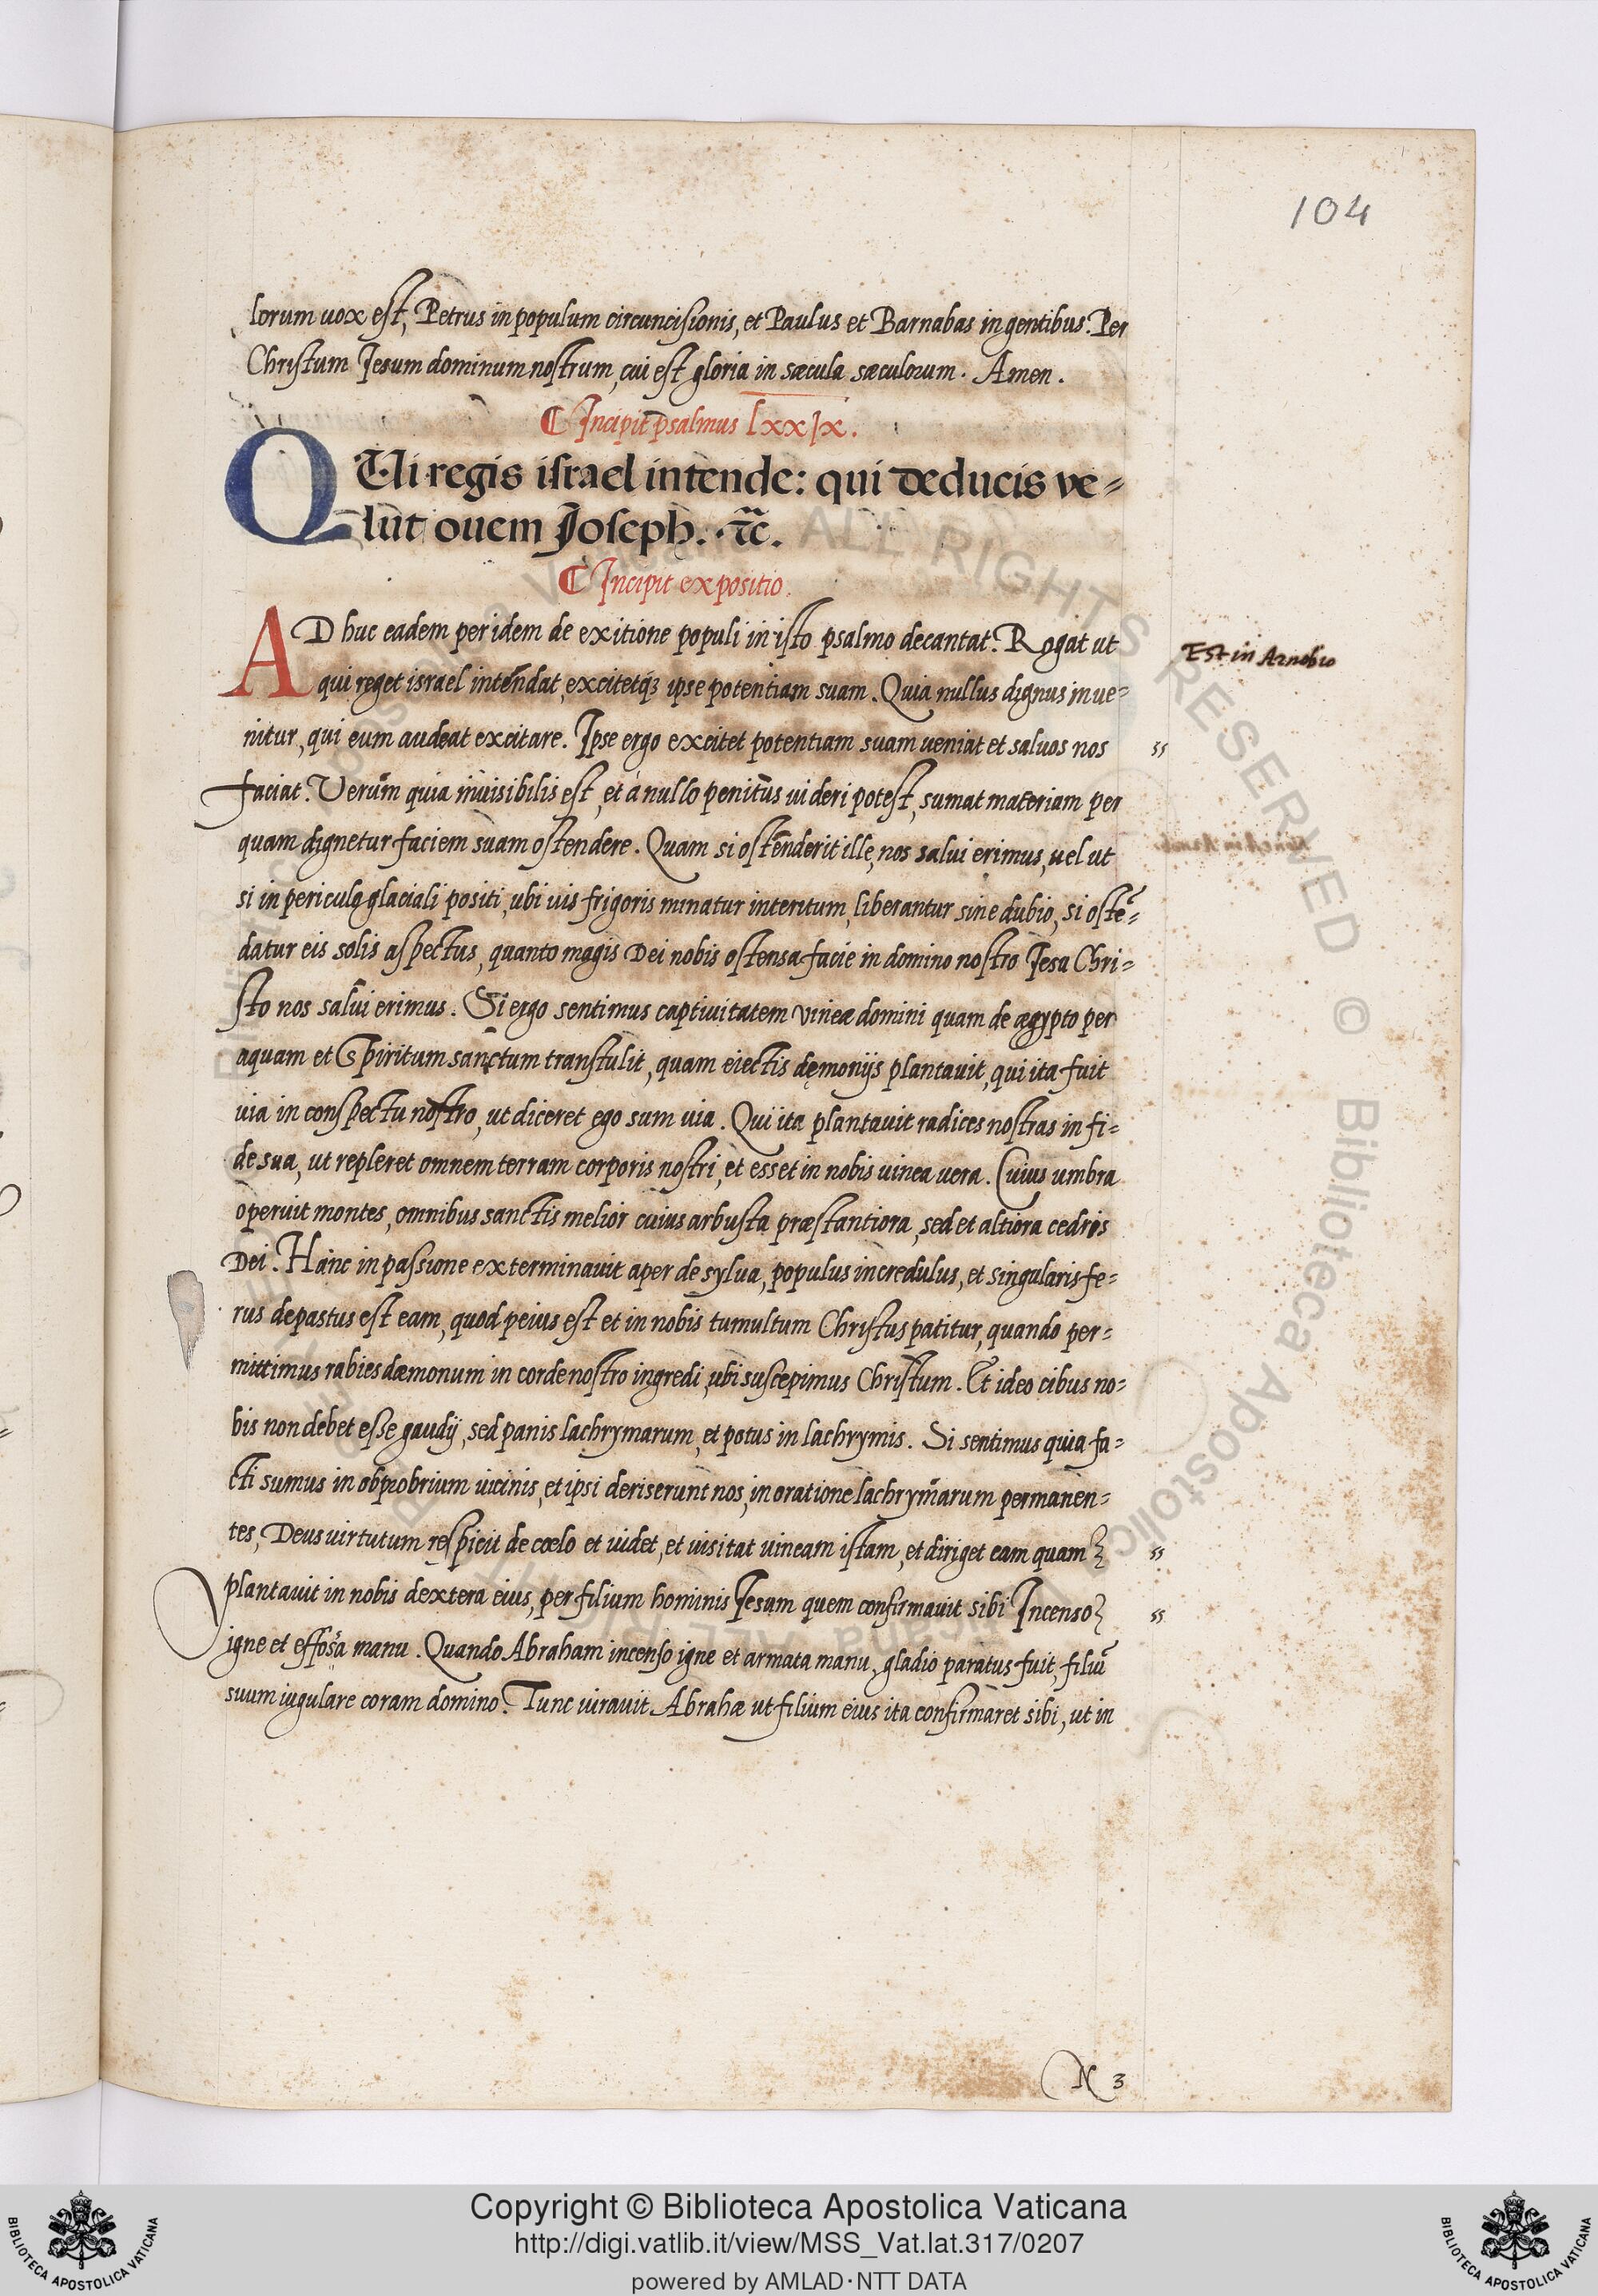 104
lorum uox est, Petrus in populum circuncisionis, et Paulus et Barnabas in gentibus. Per
Christum Jesum dominum nostrum, cui est gloria in sæcula sæculorum. Amen.
¶ Incipit psalmus lxxix.
QUi regis israel intende: qui deducis ve=
lut ouem Joseph. ⁊c̃.
¶ Incipit expositio.
AD huc eadem per idem de exitione populi in isto psalmo decantat. Rogat ut
Est in Arnobio
qui reget israel intendat, excitetq́ꝫ ipse potentiam suam. Quia nullus dignus inue=
nitur, qui eum audeat excitare. Ipse ergo excitet potentiam suam ueniat et saluos nos
faciat. Verum quia inuisibilis est, et á nullo penitus uideri potest, sumat materiam per
quam dignetur faciem suam ostendere. Quam si ostenderit ille, nos salui erimus, uel ut
si in pericula glaciali positi, ubi uis frigoris minatur interitum, liberantur sine dubio, si ostẽ=
datur eis solis aspectus, quanto magis Dei nobis ostensa facie in domino nostro Jesu Chri=
sto nos salui erimus. Si ergo sentimus captiuitatem vineæ domini quam de ægypto per
aquam et Spiritum sanctum transtulit, quam eiectis dęmonijs plantauit, qui ita fuit
uia in conspectu nostro, ut diceret ego sum uia. Qui ita plantauit radices nostras in fi=
de sua, ut repleret omnem terram corporis nostri, et esset in nobis uinea uera. Cuius umbra
operuit montes, omnibus sanctis melior cuius arbusta præstantiora, sed et altiora cedris
Dei. Hanc in passione exterminauit aper de sylua, populus incredulus, et singularis fe=
rus depastus est eam, quod peius est et in nobis tumultum Christus patitur, quando per=
mittimus rabies dæmonum in corde nostro ingredi, ubi suscepimus Christum. Et ideo cibus no=
bis non debet esse gaudij, sed panis lachrymarum, et potus in lachrymis. Si sentimus quia fa=
cti sumus in obprobrium uicinis, et ipsi deriserunt nos, in oratione lachrymarum permanen=
tes, Deus virtutum respicit de cœlo et uidet, et visitat uineam istam, et diriget eam quam
plantauit in nobis dextera eius, per filium hominis Jesum quem confirmauit sibi Incenso
igne et effosa manu. Quando Abraham incenso igne et armata manu, gladio paratus fuit, filiũ
suum iugulare coram domino. Tunc iurauit Abrahæ ut filium eius ita confirmaret sibi, ut in
N 3
ALL RIGHTS RESERVED © Biblioteca Apostolica Vaticana
Copyright © Biblioteca Apostolica Vaticana
http://digi.vatlib.it/view/MSS_Vat.lat.317/0207
powered by AMLAD·NTT DATA
BIBLIOTECA APOSTOLICA VATICANA
BIBLIOTECA APOSTOLICA VATICANA